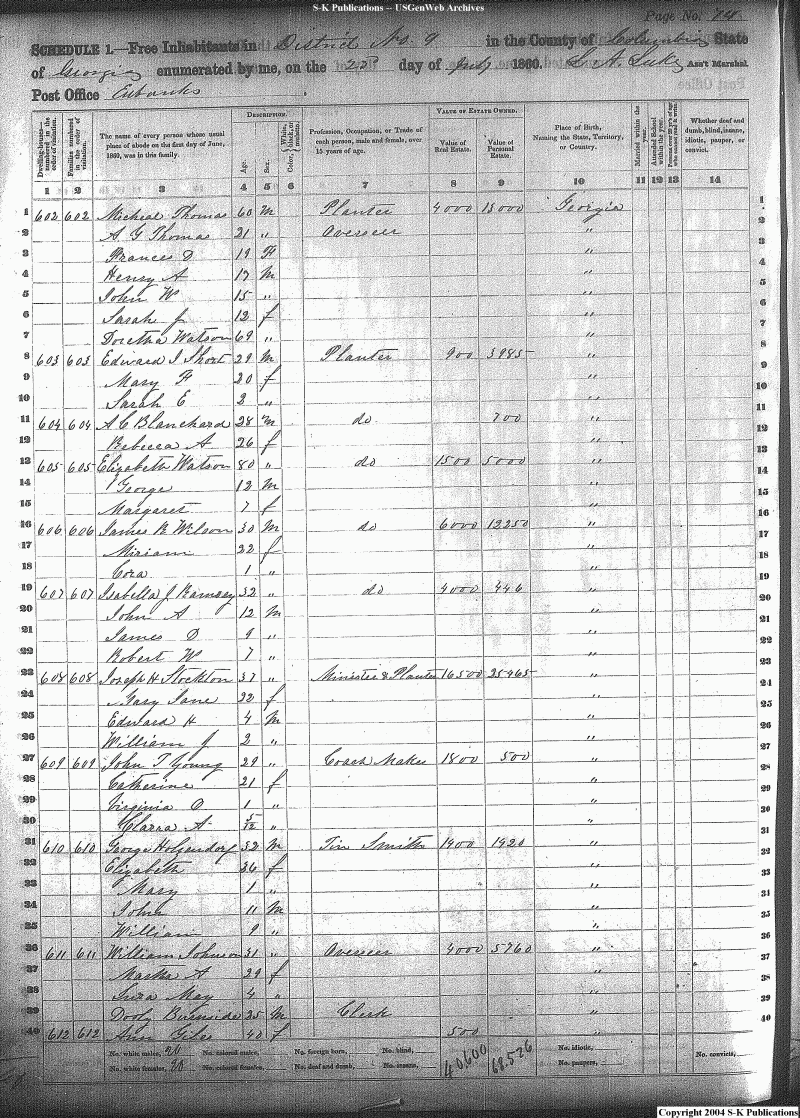 S-K Publications -- USGenWeb Archives
Page No. 74
SCHEDULE 1.—Free Inhabitants in District No. 9 in the County of Columbia State
of Georgia enumerated by me, on the 25th day of July 1860. Ass't Marshal
Post Office Eubanks
DESCRIPTION. VALUE OF ESTATE OWNED.
Dwelling-houses—numbered in the order of visitation. Families numbered in the order of visitation. The name of every person whose usual place of abode on the first day of June, 1860, was in this family. Age. Sex. Color, White, black, or mulatto. Profession, Occupation, or Trade of each person, male and female, over 15 years of age. Value of Real Estate. Value of Personal Estate. Place of Birth, Naming the State, Territory, or Country. Married within the year. Attended School within the year. Whether deaf and dumb, blind, insane, idiotic, pauper, or convict.
1 2 3 4 5 6 7 8 9 10 11 12 13 14
1 602 602 Micheal Thomas 60 m Planter 4000 13000 Georgia 1
2 A G Thomas 21 " Overseer " 2
3 Frances D 19 F " 3
4 Henry A 17 m " 4
5 John W 15 " " 5
6 Sarah J 12 f " 6
7 Doretha Watson 69 " " 7
8 603 603 Edward J Short 29 m Planter 900 3985 " 8
9 Mary F 20 f " 9
10 Sarah E 2 " " 10
11 604 604 A C Blanchard 28 m do 700 " 11
12 Rebecca A 26 f " 12
13 605 605 Elizabeth Watson 80 " do 1500 5000 " 13
14 George 12 m " 14
15 Margaret 7 f " 15
16 606 606 James B Wilson 30 m do 6000 12250 " 16
17 Miriam 22 f " 17
18 Cora 1 " " 18
19 607 607 Isabella J Ramsey 32 " do 4000 446 " 19
20 John A 12 m " 20
21 James D 9 " " 21
22 Robert W 7 " " 22
23 608 608 Joseph H Stockton 37 " Minister & Planter 16500 25465 " 23
24 Mary Jane 32 f " 24
25 Edward H 4 m " 25
26 William J 2 " " 26
27 609 609 John T Young 29 " Coach Maker 1800 500 " 27
28 Catherine 21 f " 28
29 Virginia O 1 " " 29
30 Clarra A 5/12 " " 30
31 610 610 George Holzendorf 32 m Tin Smith 1900 1920 " 31
32 Elizabeth 36 f " 32
33 Mary 1 " " 33
34 John 11 m " 34
35 William 9 " " 35
36 611 611 William Johnson 31 " Overseer 4000 5760 " 36
37 Martha A 29 f " 37
38 Suza May 4 " " 38
39 Dooly Burnside 25 m Clerk " 39
40 612 612 Ann Giles 40 f 500 " 40
No. white males, 20 No. colored males, No. foreign born, No. blind, 40600 68.526 No. idiotic, No. convicts,
No. white females, 20 No. colored females, No. deaf and dumb, No. insane, No. paupers,
Copyright 2004 S-K Publications